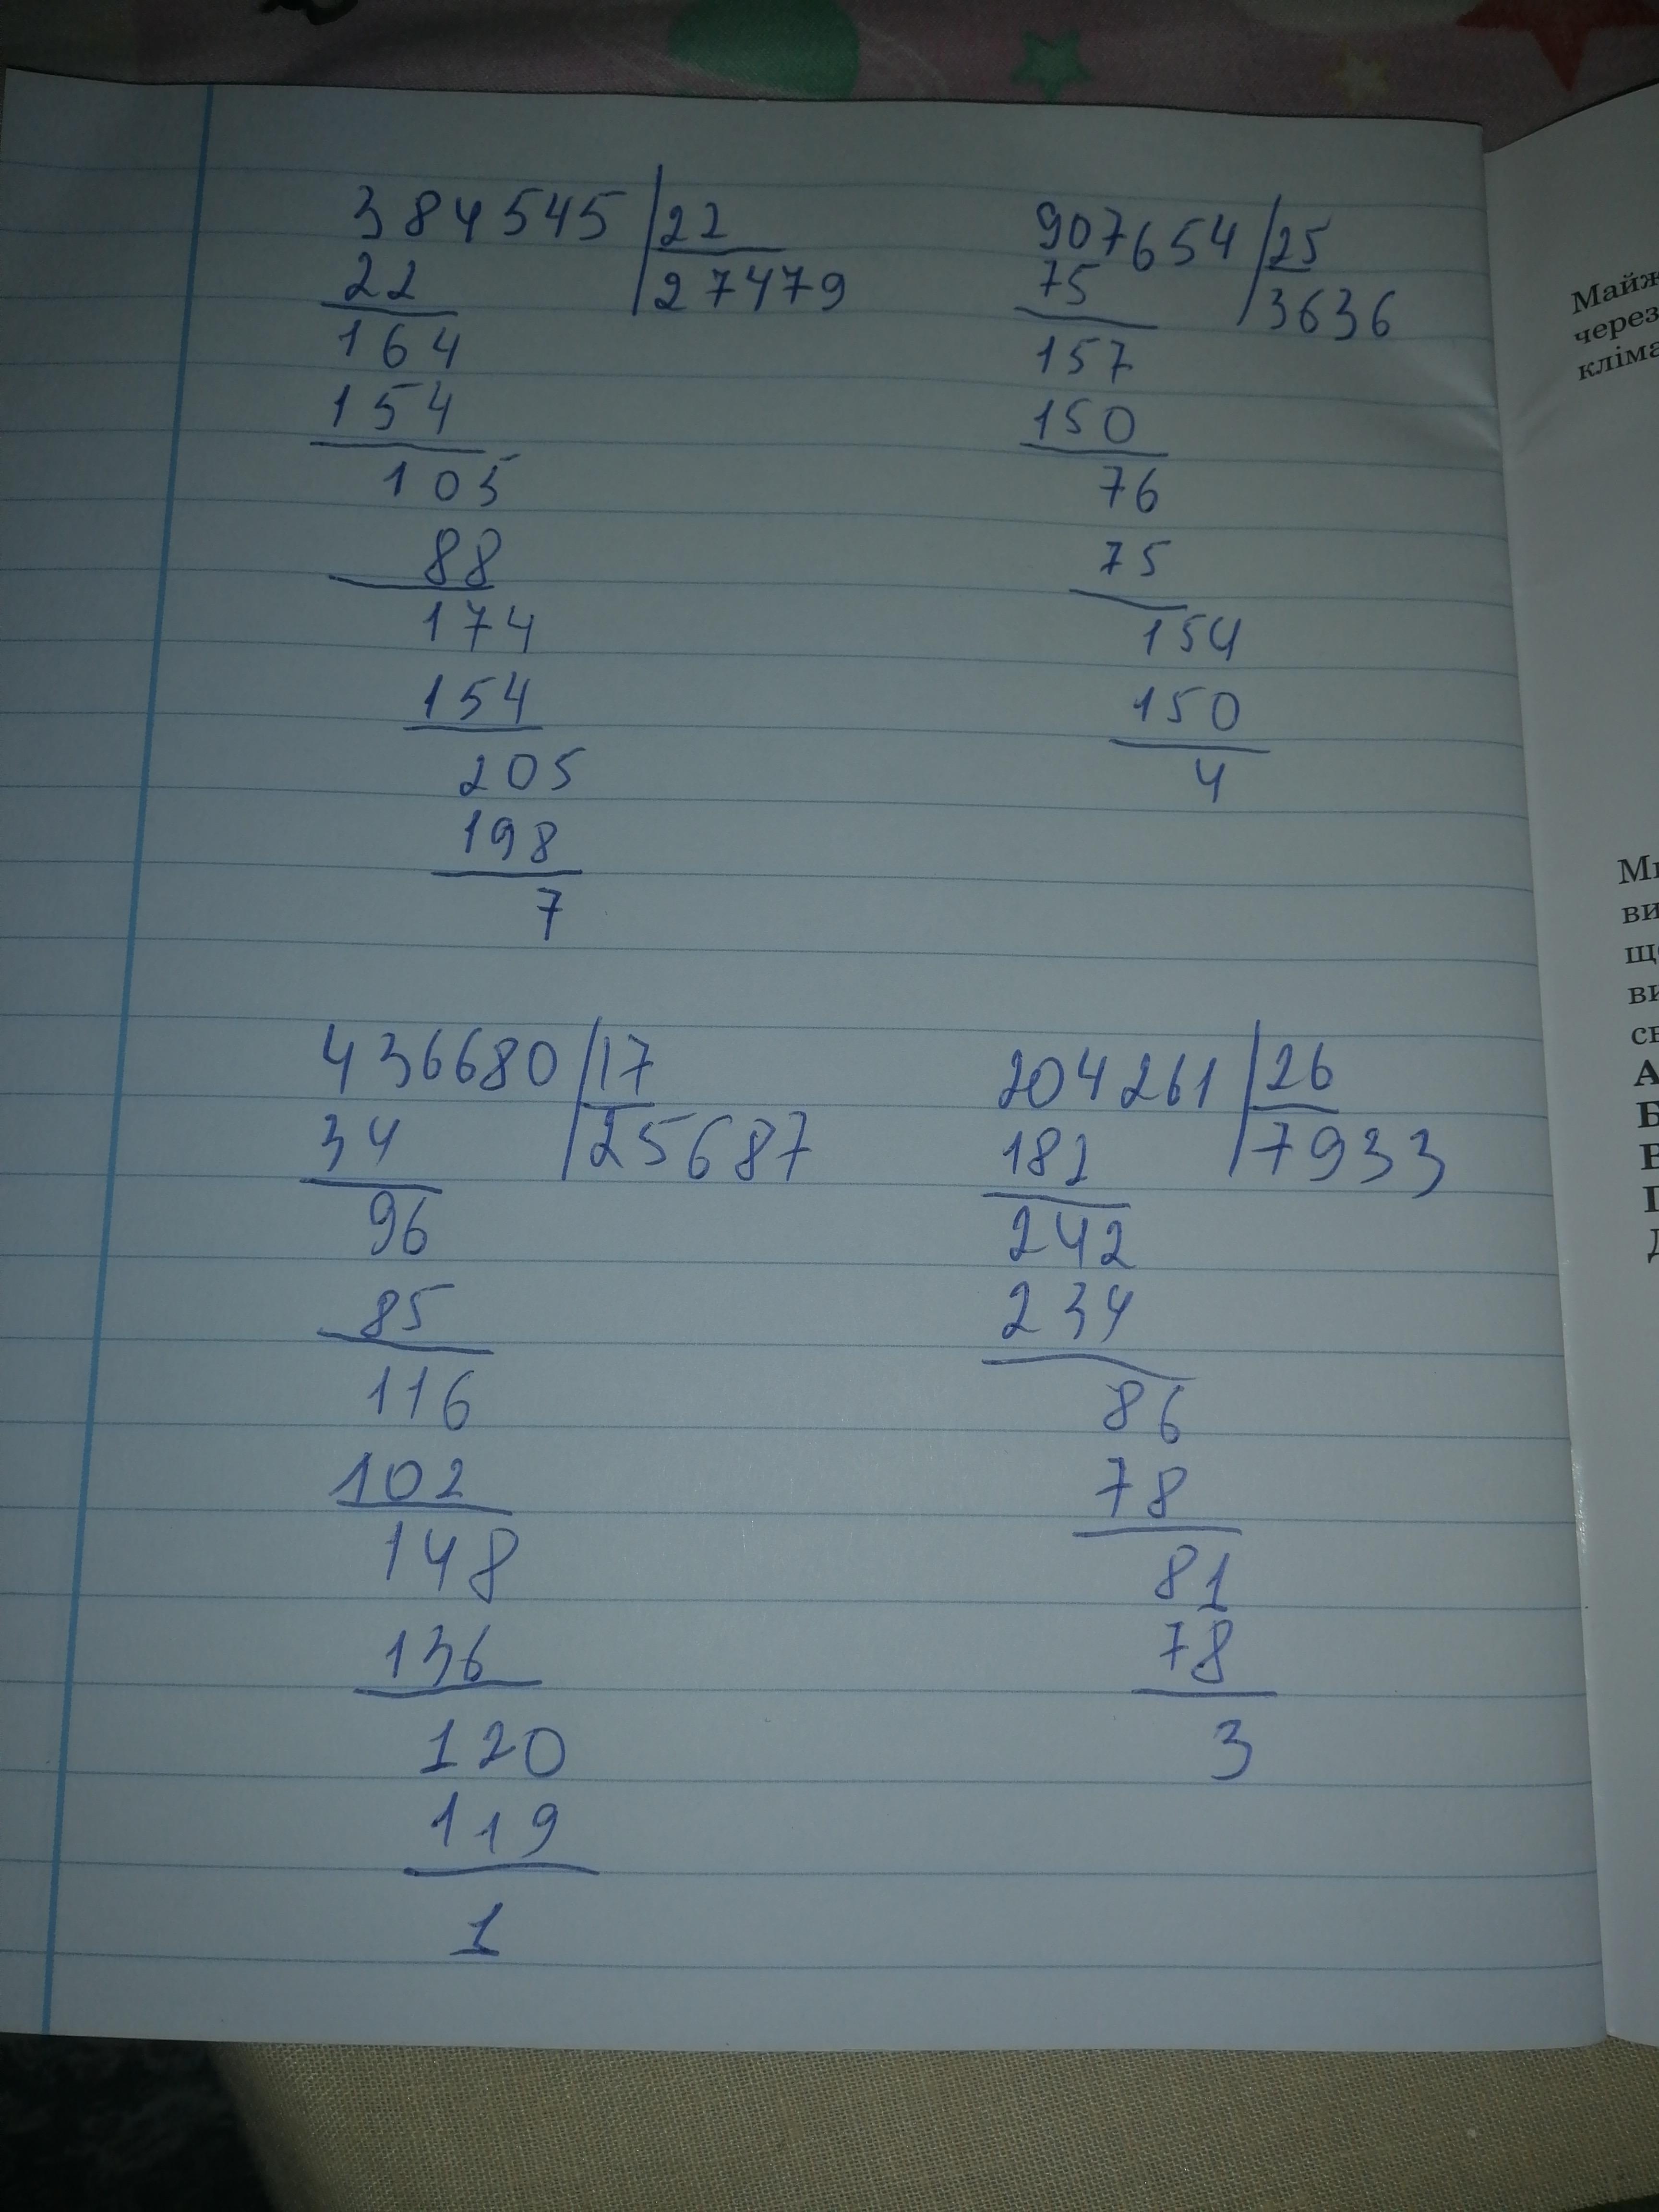 384545 22
22 27479
164
154
105
88
174
154
205
198
7
907654 25
75 3636
157
150
76
75
154
150
4
436680 17
34 25687
96
85
116
102
148
136
120
119
1
204261 26
182 7933
242
234
86
78
81
78
3
через